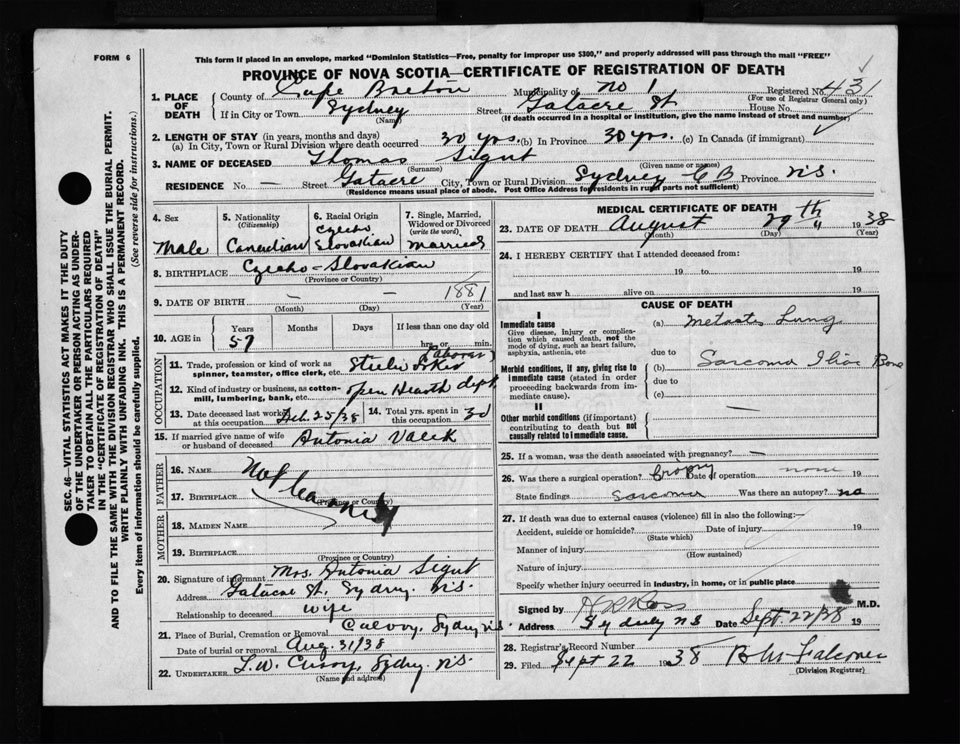 FORM 6
This form if placed in an envelope, marked "Dominion Statistics—Free, penalty for improper use $300," and properly addressed will pass through the mail "FREE"
PROVINCE OF NOVA SCOTIA—CERTIFICATE OF REGISTRATION OF DEATH
1. PLACE OF DEATH County of Cape Breton Municipality of No 1 Registered No. 431
(For use of Registrar General only)
If in City or Town Sydney Street Gatacre St House No.
(Name) (If death occurred in a hospital or institution, give the name instead of street and number)
2. LENGTH OF STAY (in years, months and days)
(a) In City, Town or Rural Division where death occurred 30 yrs. (b) In Province 30 yrs. (c) In Canada (if immigrant)
3. NAME OF DECEASED Thomas Sigut
(Surname) (Given name or names)
RESIDENCE No. — Street Gatacre City, Town or Rural Division Sydney C B Province N.S.
(Residence means usual place of abode. Post Office Address for residents in rural parts not sufficient)
4. Sex Male
5. Nationality (Citizenship) Canadian
6. Racial Origin Czecho Slovakian
7. Single, Married, Widowed or Divorced (write the word) Married
8. BIRTHPLACE Czecho-Slovakian
(Province or Country)
9. DATE OF BIRTH — — 1881
(Month) (Day) (Year)
10. AGE in Years Months Days If less than one day old
57 hrs. or min.
OCCUPATION
11. Trade, profession or kind of work as spinner, teamster, office clerk, etc. (Labourer)
12. Kind of industry or business, as cotton-mill, lumbering, bank, etc. Open Hearth dept
13. Date deceased last worked at this occupation Feb. 25/38 14. Total yrs. spent in this occupation 30
15. If married give name of wife or husband of deceased Antonia Valek
FATHER
16. NAME
17. BIRTHPLACE
(Province or Country)
MOTHER
18. MAIDEN NAME
19. BIRTHPLACE
(Province or Country)
20. Signature of informant Mrs. Antonia Sigut
Address Gatacre St. Sydney. N.S.
Relationship to deceased wife
21. Place of Burial, Cremation or Removal Sydney N.S.
Date of burial or removal Aug 31/38
22. UNDERTAKER Sydney. N.S.
(Name and address)
MEDICAL CERTIFICATE OF DEATH
23. DATE OF DEATH August 29th 1938
(Month) (Day) (Year)
24. I HEREBY CERTIFY that I attended deceased from:
19 to 19
and last saw h alive on 19
CAUSE OF DEATH
I
Immediate cause
Give disease, injury or complication which caused death, not the mode of dying, such as heart failure, asphyxia, asthenia, etc
(a) Lung
due to
Morbid conditions, if any, giving rise to immediate cause (stated in order proceeding backwards from immediate cause).
(b) Sarcoma Iliac Bone
due to
(c)
II
Other morbid conditions (if important) contributing to death but not causally related to immediate cause. —
25. If a woman, was the death associated with pregnancy? —
26. Was there a surgical operation? Date of operation none 19
State findings sarcoma Was there an autopsy? no
27. If death was due to external causes (violence) fill in also the following:—
Accident, suicide or homicide? Date of injury 19
(State which)
Manner of injury
(How sustained)
Nature of injury
Specify whether injury occurred in industry, in home, or in public place
Signed by Ross M.D.
Address Sydney NS Date Sept. 22/38 19
28. Registrar's Record Number
29. Filed Sept 22 1938
(Division Registrar)
SEC. 46—VITAL STATISTICS ACT MAKES IT THE DUTY OF THE UNDERTAKER OR PERSON ACTING AS UNDERTAKER TO OBTAIN ALL THE PARTICULARS REQUIRED IN THE "CERTIFICATE OF REGISTRATION OF DEATH" AND TO FILE THE SAME WITH THE DIVISION REGISTRAR WHO SHALL ISSUE THE BURIAL PERMIT.
WRITE PLAINLY WITH UNFADING INK. THIS IS A PERMANENT RECORD.
Every item of information should be carefully supplied. (See reverse side for instructions.)